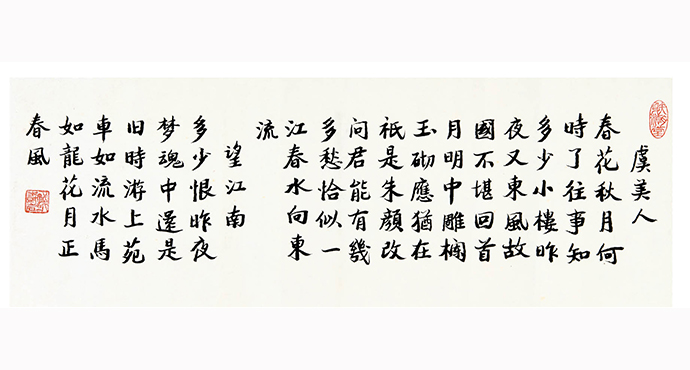 虞美人
春花秋月何
時了往事知
多少小樓昨
夜又東風故
國不堪回首
月明中雕欄
玉砌應猶在
祇是朱顏改
问君能有幾
多愁恰似一
江春水向東
流
望江南
多少恨昨夜
梦魂中還是
旧時游上苑
車如流水馬
如龍花月正
春風